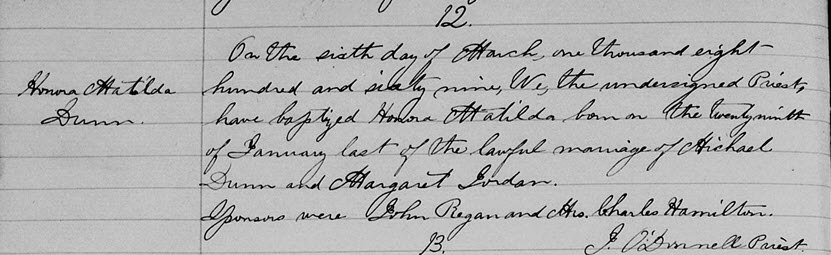 12.
On the sixth day of March, one thousand eight
Honora Matilda
Dunn.
hundred and sixty nine, We, the undersigned Priest,
have baptized Honora Matilda born on the twenty ninth
of January last of the lawful marriage of Michael
Dunn and Margaret Jordan.
Sponsors were John Regan and Mrs. Charles Hamilton.
13.
J. O'Donnell Priest.